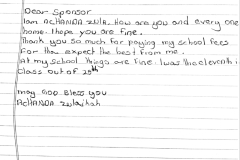 Dear Sponsor
I am ACHANDA How are you and every one
home. I hope you are fine.
Thank you so much for paying my school fees
For thou expect the best from me.
At my school things are fine. I was the eleventh i
Class out of 25th
may GOD Bless you
ACHANDA